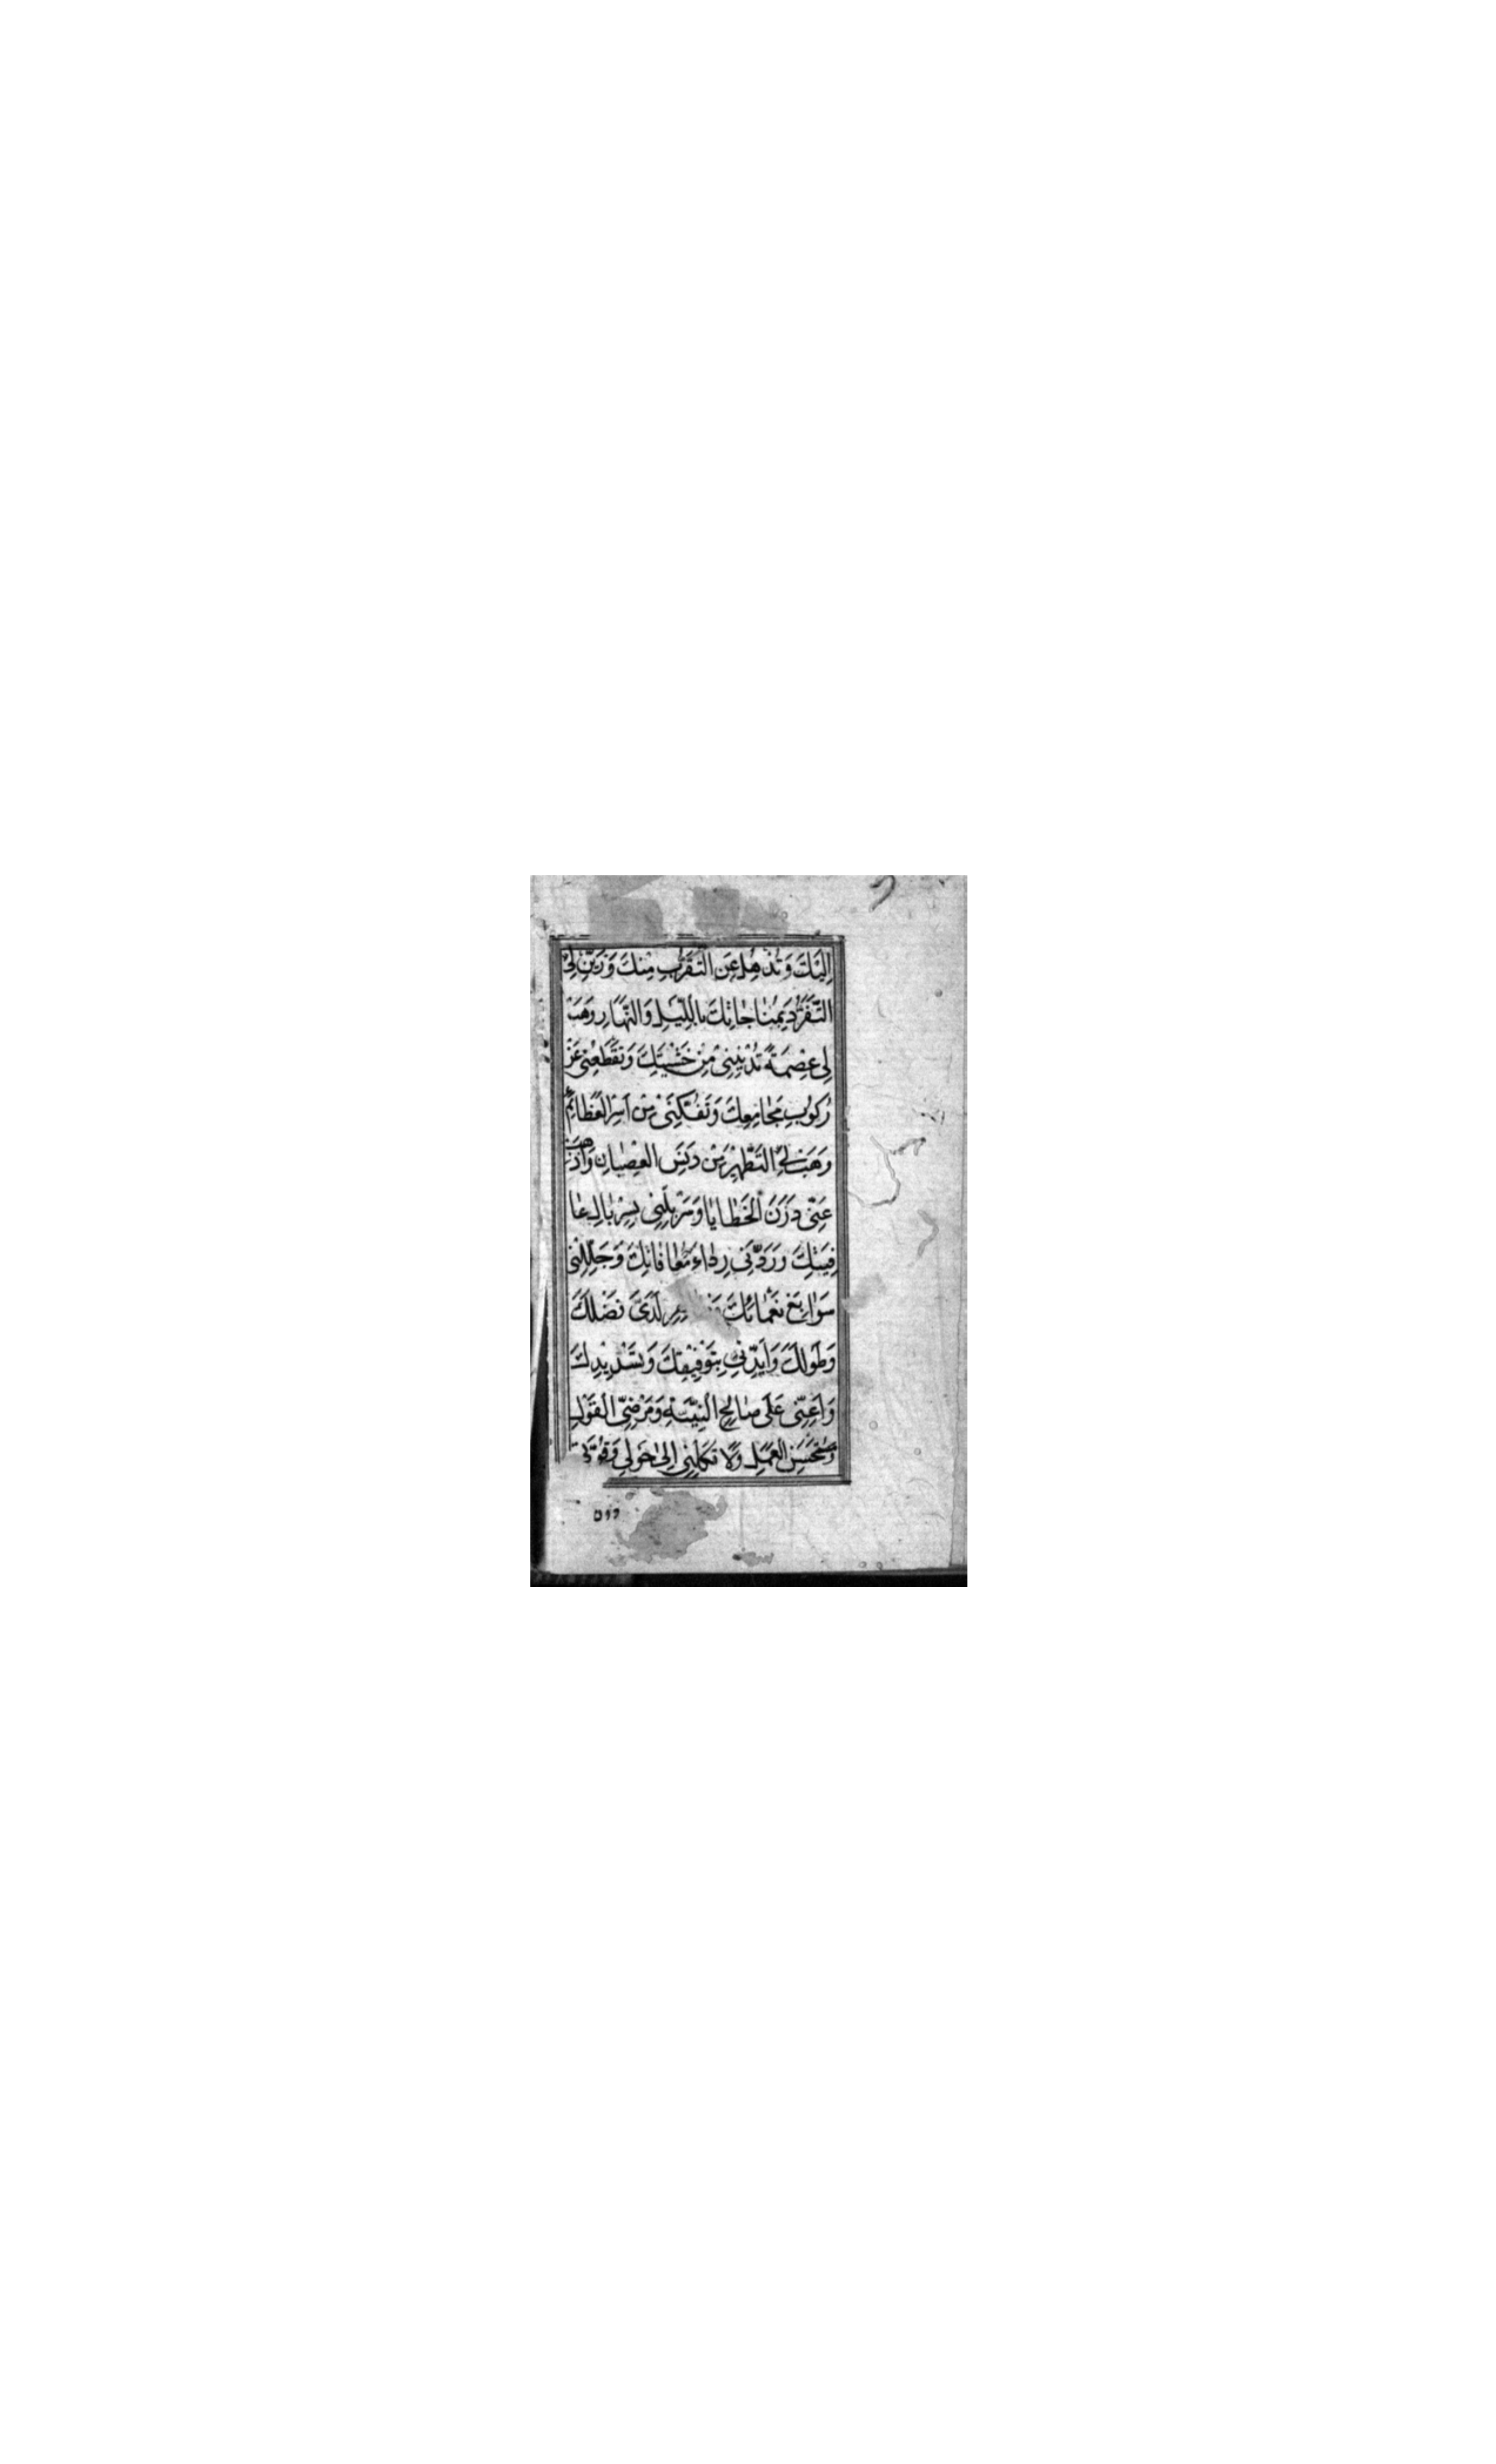 اِلَيْكَ وَتُذْهِلُ عَنِ التَّقَرُّبِ مِنْكَ وَزَيِّنْ لِيَ
التَّفَرُّدَ بِمُنَاجَاتِكَ بِاللَّيْلِ وَالنَّهَارِ وَهَبْ
لِي عِصْمَةً تُدْنِينِي مِنْ خَشْيَتِكَ وَتَقْطَعُنِي عَنْ
رُكُوبِ مَحَامِعِكَ وَتَفُكَّنِي مِنْ اَسْرِ الْعَظَائِمِ
وَهَبْ لِيَ التَّطْهِيرَ مِنْ دَنَسِ الْعِصْيَانِ وَاَذْهِبْ
عَنِّي دَرَنَ الْخَطَايَا وَسَرْبِلْنِي بِسِرْبَالِ عَا
فِيَتِكَ وَرَدِّنِي رِدَاءَ مُعَافَاتِكَ وَجَلِّلْنِي
سَوَابِغَ نَعْمَائِكَ لَدَيَّ فَضْلَكَ
وَطَوْلَكَ وَاَيِّدْنِي بِتَوْفِيقِكَ وَتَسْدِيدِكَ
وَاَعِنِّي عَلَى صَالِحِ النِّيَّةِ وَمَرْضِيِّ الْقَوْلِ
وَمُسْتَحْسَنِ الْعَمَلِ وَلَا تَكِلْنِي اِلَى حَوْلِي وَقُوَّتِي